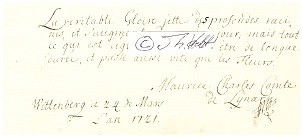 La veritable Gloire jette de profondes raci-
nes, et s'augmente jour, mais tout
ce qui est etre de longue
durée, et passe aussi vite que les Fleurs.
Maurice Charles Comte
de Lynar
Wittenberg ce 24 de Mars
L'an 1721.